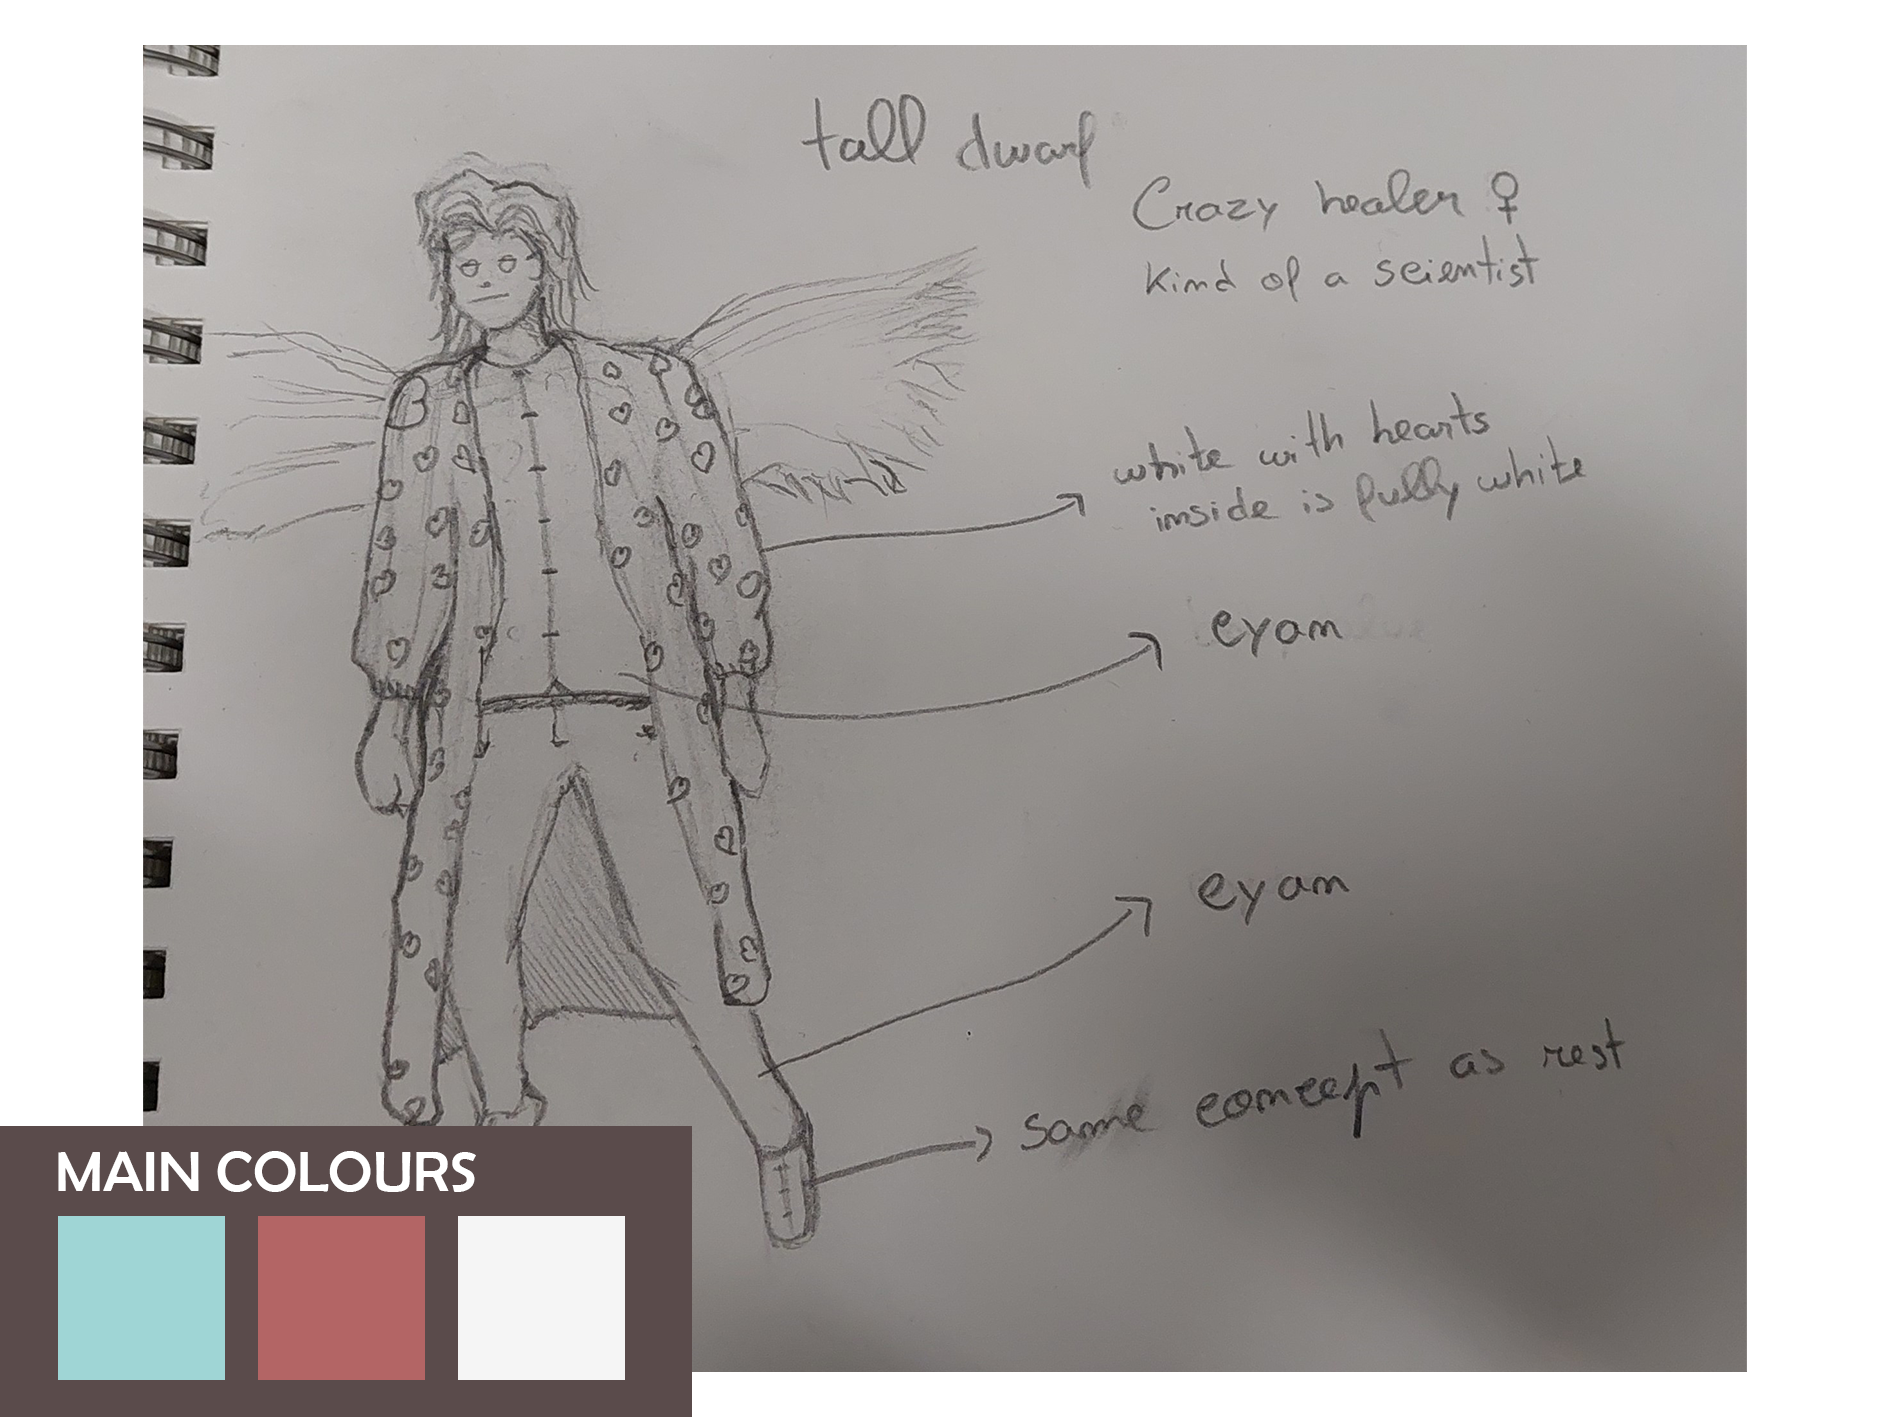 tall dwarf
Crazy healer ♀
kind of a scientist
white with hearts
inside is fully white
cyan
cyan
same concept as rest
MAIN COLOURS